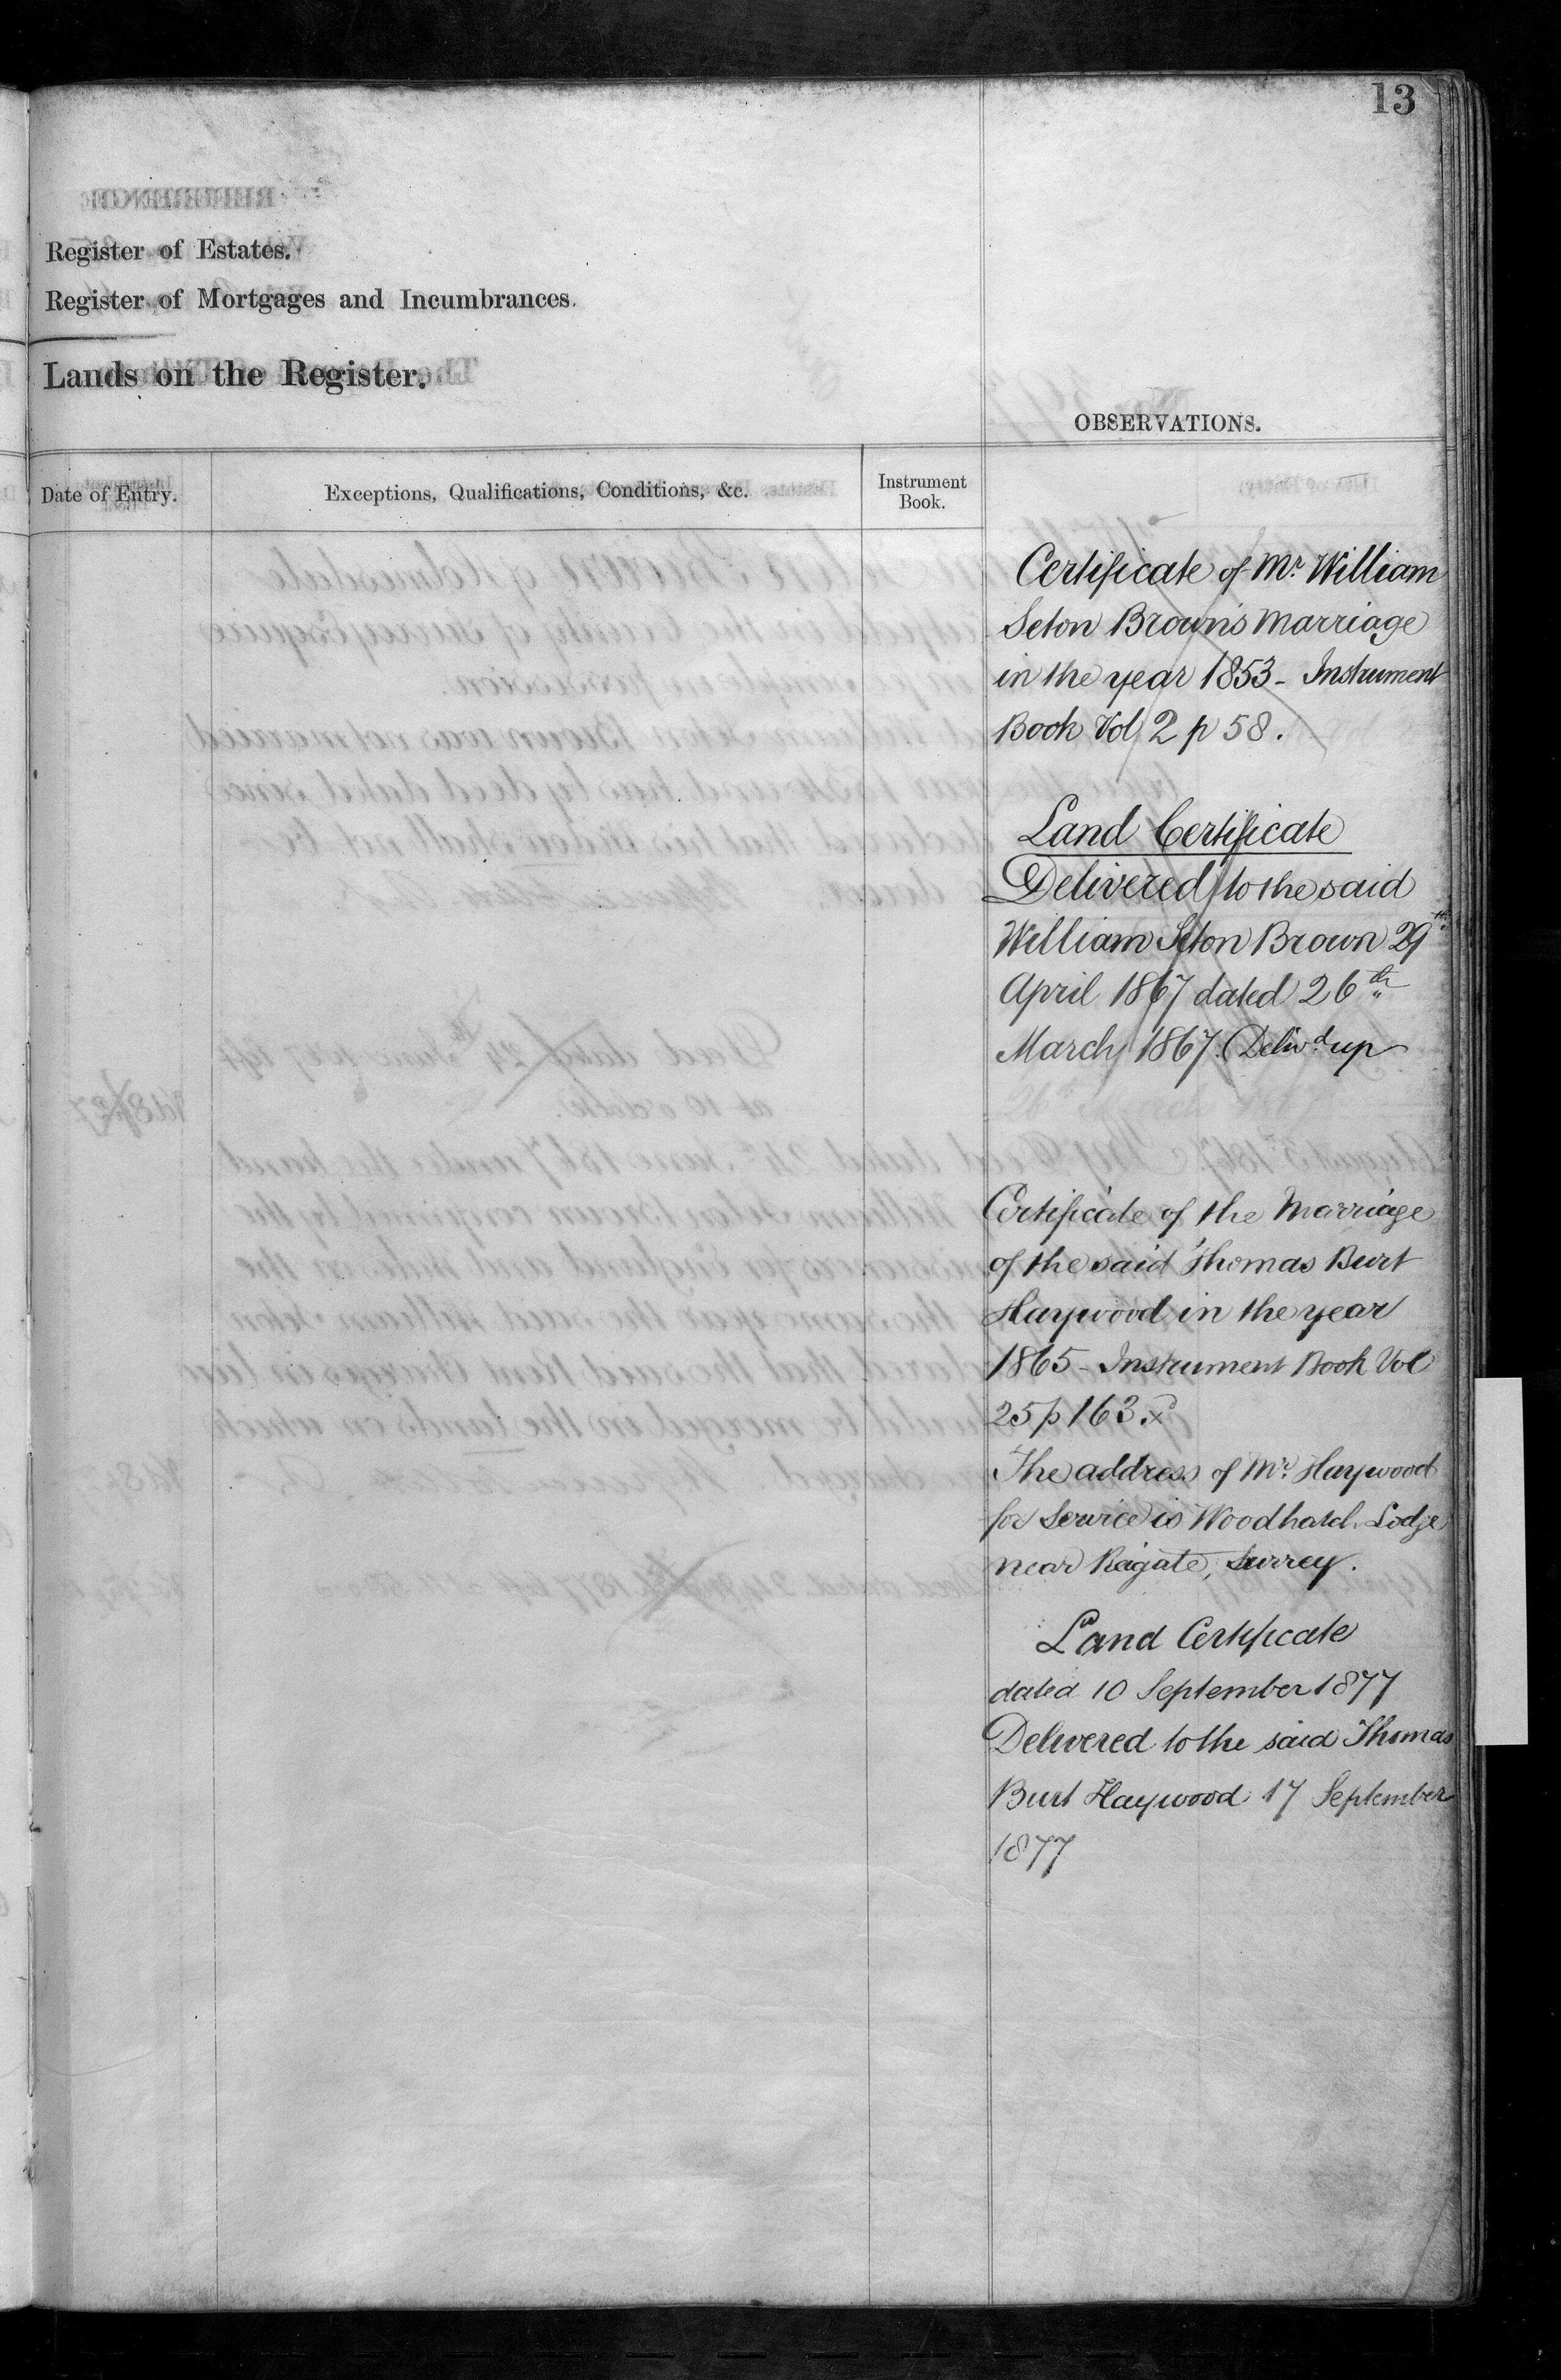 13
Register of Estates.
Register of Mortgages and Incumbrances.
Lands on the Register.
OBSERVATIONS.
Date of Entry.
Exceptions, Qualifications, Conditions, &c.
Instrument
Book.
Certificate of Mr. William
Seton Brown's Marriage
in the year 1853 - Instrument
Book Vol 2 p 58.
Land Certificate
Delivered to the said
William Seton Brown 29th
April 1867 dated 26th
March 1867. Deliv.d up
Certificate of the Marriage
of the said Thomas Burt
Haywood in the year
1865 - Instrument Book Vol
25 p 163.
The address of Mr. Haywood
for Service is Woodhatch Lodge
near Reigate, Surrey.
Land Certificate
dated 10 September 1877
Delivered to the said Thomas
Burt Haywood 17 September
1877